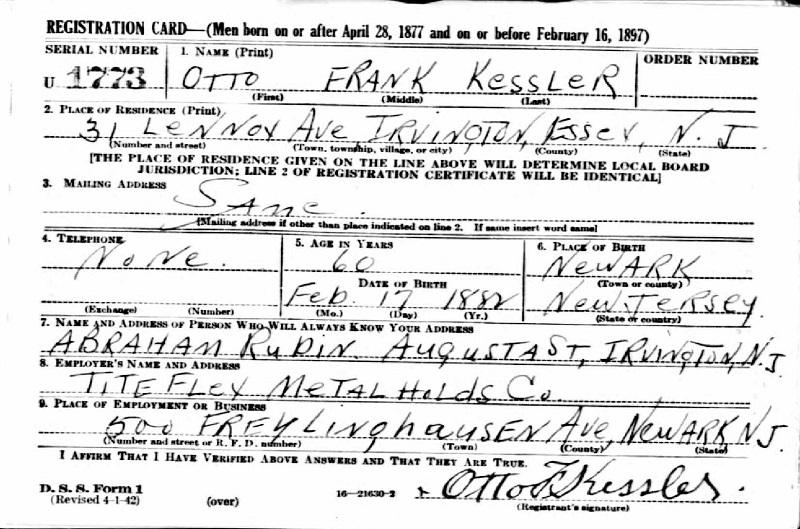 REGISTRATION CARD—(Men born on or after April 28, 1877 and on or before February 16, 1897)
SERIAL NUMBER 1. NAME (Print) ORDER NUMBER
U 1773 OTTO FRANK KESSLER
(First) (Middle) (Last)
2. PLACE OF RESIDENCE (Print)
31 LENNOX AVE IRVINGTON, ESSEX, N.J
(Number and street) (Town, township, village, or city) (County) (State)
[THE PLACE OF RESIDENCE GIVEN ON THE LINE ABOVE WILL DETERMINE LOCAL BOARD
JURISDICTION; LINE 2 OF REGISTRATION CERTIFICATE WILL BE IDENTICAL]
3. MAILING ADDRESS
SAME.
[Mailing address if other than place indicated on line 2. If same insert word same]
4. TELEPHONE 5. AGE IN YEARS 6. PLACE OF BIRTH
NONE. 60 NEWARK
DATE OF BIRTH (Town or county)
Feb. 17 1882 NEW JERSEY.
(Exchange) (Number) (Mo.) (Day) (Yr.) (State or country)
7. NAME AND ADDRESS OF PERSON WHO WILL ALWAYS KNOW YOUR ADDRESS
ABRAHAM RUDIN AUGUSTA ST, IRVINGTON, N.J.
8. EMPLOYER'S NAME AND ADDRESS
TITE FLEX METAL HOLDS Co
9. PLACE OF EMPLOYMENT OR BUSINESS
500 FREYLINGHAUSEN AVE, NEWARK N.J.
(Number and street or R. F. D. number) (Town) (County) (State)
I AFFIRM THAT I HAVE VERIFIED ABOVE ANSWERS AND THAT THEY ARE TRUE.
D. S. S. Form 1
(Revised 4-1-42) (over) 16—21630-2 Otto F Kessler.
(Registrant's signature)